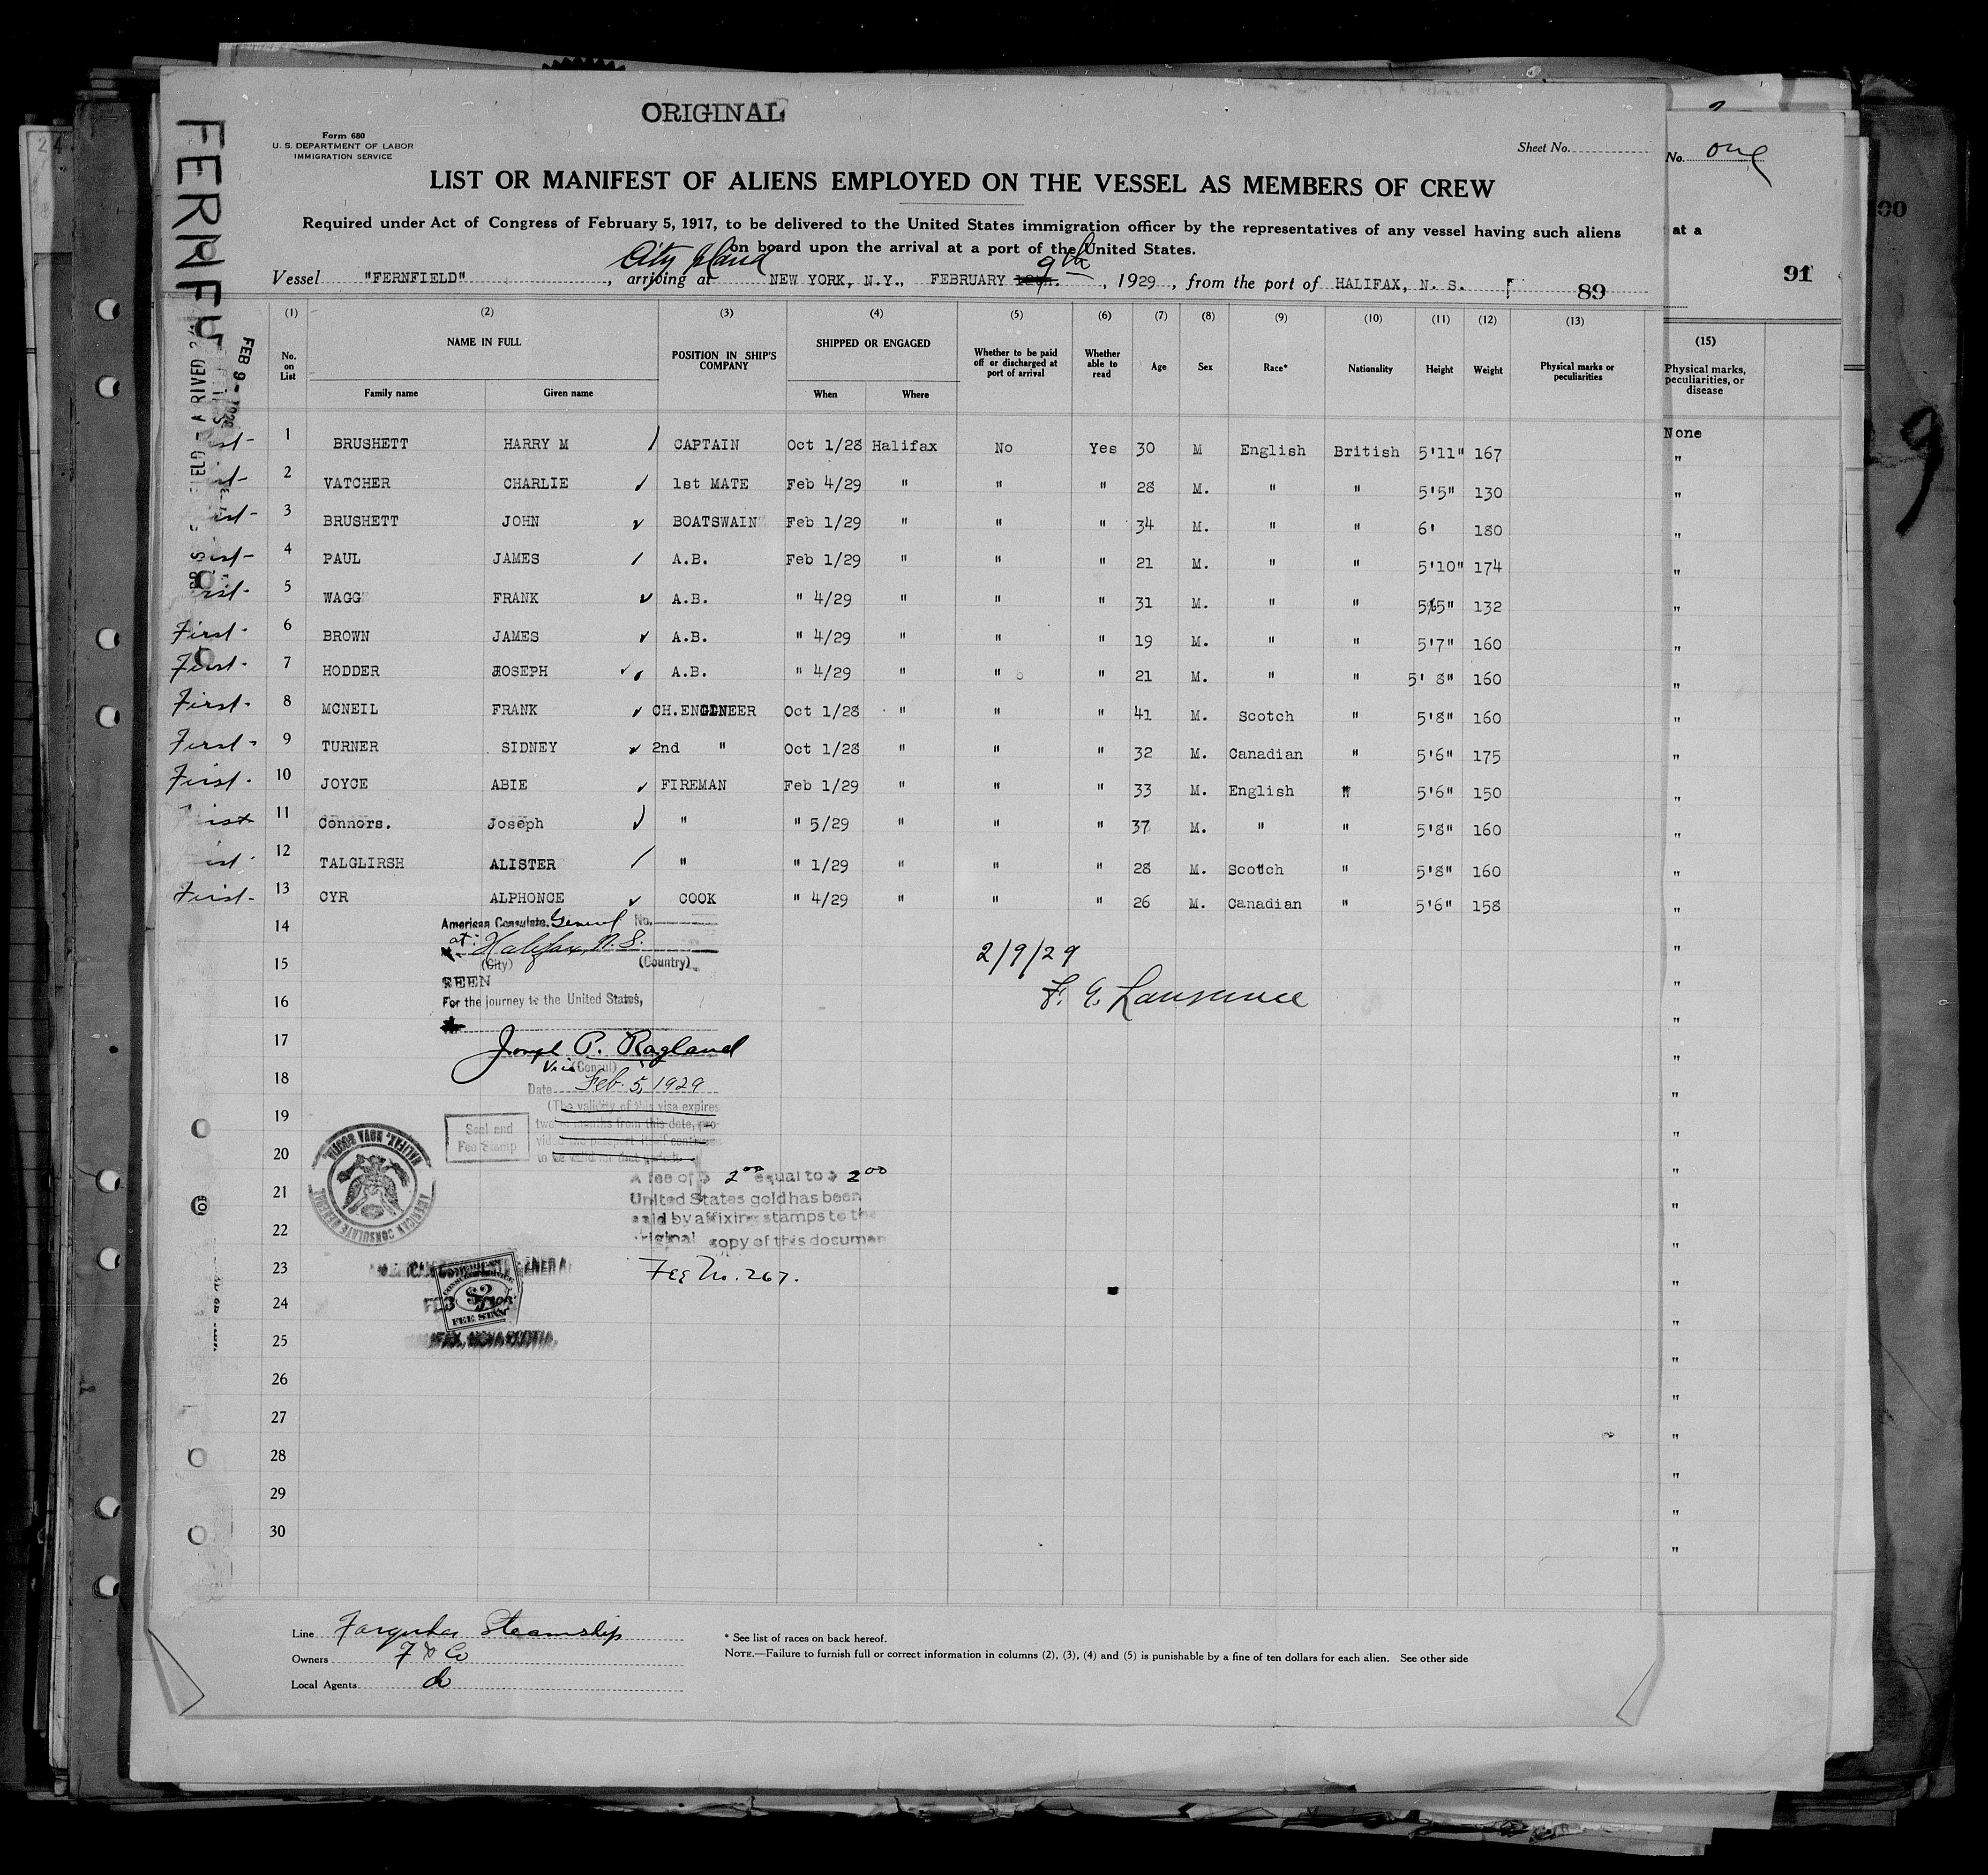 ORIGINAL
Form 680
U. S. DEPARTMENT OF LABOR
IMMIGRATION SERVICE
Sheet No.
No. one
LIST OR MANIFEST OF ALIENS EMPLOYED ON THE VESSEL AS MEMBERS OF CREW
Required under Act of Congress of February 5, 1917, to be delivered to the United States immigration officer by the representatives of any vessel having such aliens
on board upon the arrival at a port of the United States.
at a
City Island
Vessel "FERNFIELD", arriving at NEW YORK, N.Y., FEBRUARY 9th, 1929, from the port of HALIFAX, N. S.
89
91
(1) (2) (3) (4) (5) (6) (7) (8) (9) (10) (11) (12) (13) (15)
No. on List
NAME IN FULL
Family name Given name
POSITION IN SHIP'S COMPANY
SHIPPED OR ENGAGED
When Where
Whether to be paid off or discharged at port of arrival
Whether able to read
Age Sex Race* Nationality Height Weight
Physical marks or peculiarities
Physical marks, peculiarities, or disease
FEB 9 - 1929
None
1 BRUSHETT HARRY M CAPTAIN Oct 1/28 Halifax No Yes 30 M English British 5'11" 167
2 VATCHER CHARLIE 1st MATE Feb 4/29 " " " 28 M. " " 5'5" 130
3 BRUSHETT JOHN BOATSWAIN Feb 1/29 " " " 34 M. " " 6' 180
4 PAUL JAMES A.B. Feb 1/29 " " " 21 M. " " 5'10" 174
5 WAGG FRANK A.B. " 4/29 " " " 31 M. " " 5'5" 132
First - 6 BROWN JAMES A.B. " 4/29 " " " 19 M. " " 5'7" 160
First - 7 HODDER JOSEPH A.B. " 4/29 " " " 21 M. " " 5' 8" 160
First - 8 MCNEIL FRANK CH.ENGINEER Oct 1/28 " " " 41 M. Scotch " 5'8" 160
First - 9 TURNER SIDNEY 2nd " Oct 1/28 " " " 32 M. Canadian " 5'6" 175
First - 10 JOYCE ABIE FIREMAN Feb 1/29 " " " 33 M. English " 5'6" 150
11 Connors. Joseph " " 5/29 " " " 37 M. " " 5'8" 160
12 TALGLIRSH ALISTER " " 1/29 " " " 28 M. Scotch " 5'8" 160
First - 13 CYR ALPHONCE COOK " 4/29 " " " 26 M. Canadian " 5'6" 158
14
15
16
17
18
19
20
21
22
23
24
25
26
27
28
29
30
American Consulate General No.
at: Halifax, N.S.
(City) (Country)
SEEN
For the journey to the United States,
Joseph P. Ragland
Vice (Consul)
Date Feb. 5, 1929
(The validity of this visa expires
twelve months from this date, pro-
Seal and
Fee Stamp
2/9/29
F. G. Laurence
A fee of $ 2 00 equal to $ 2 00
United States gold has been
paid by affixing stamps to the
original copy of this documen
Fee No. 267.
HALIFAX, NOVA SCOTIA.
$2
FEE STAMP
Line Farquhar Steamship
Owners F & Co
Local Agents do
* See list of races on back hereof.
NOTE.—Failure to furnish full or correct information in columns (2), (3), (4) and (5) is punishable by a fine of ten dollars for each alien. See other side